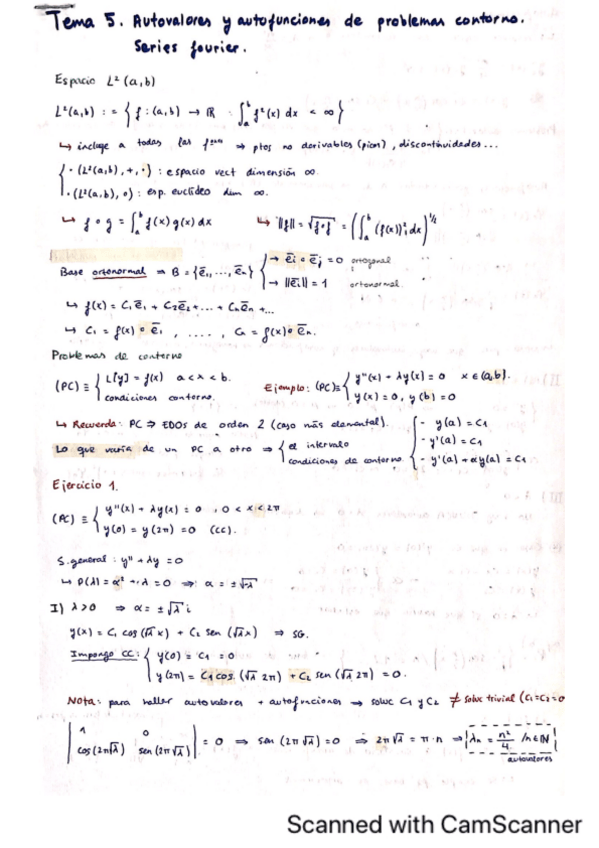 Tema 5. Autovalores y autofunciones de problemas contorno.
Series fourier.
Espacio L²(a,b)
L²(a,b) := { f:(a,b) → ℝ : ∫ₐᵇ f²(x) dx < ∞ }
↳ incluye a todas las fᶜⁱᵒⁿ ⇒ ptos no derivables (picos), discontinuidades...
· (L²(a,b), +, ·) : espacio vect dimensión ∞.
· (L²(a,b), ∘) : esp. euclídeo dim ∞.
↳ f ∘ g = ∫ₐᵇ f(x) g(x) dx ↳ ||f|| = √f∘f = (∫ₐᵇ (f(x))² dx)^1/2
Base ortonormal ⇒ B = {ē₁, ..., ēₙ} { → ēᵢ ∘ ēⱼ = 0 ortogonal
→ ||ēᵢ|| = 1 ortonormal.
↳ f(x) = C₁ē₁ + C₂ē₂ + ... + Cₙēₙ + ...
↳ C₁ = f(x) ∘ ē₁ , ...., Cₙ = f(x) ∘ ēₙ.
Problemas de contorno
(PC) ≡ { L[y] = f(x) a < x < b.
condiciones contorno.
Ejemplo: (PC) ≡ { y''(x) + λy(x) = 0 x ∈ (a,b).
y(x) = 0, y(b) = 0
↳ Recuerda: PC ⇒ EDOs de orden 2 (caso más elemental).
Lo que varía de un PC a otro ⇒ { el intervalo
condiciones de contorno { - y(a) = C₁
- y'(a) = C₁
- y'(a) + αy(a) = C₁
Ejercicio 1.
(PC) ≡ { y''(x) + λy(x) = 0 , 0 < x < 2π
y(0) = y(2π) = 0 (CC).
S. general : y'' + λy = 0
↳ P(λ) = α² + λ = 0 ⇒ α = ±√-λ
I) λ>0 ⇒ α = ±√λ i
y(x) = C₁ cos (√λ x) + C₂ sen (√λ x) ⇒ SG.
Impongo CC: { y(0) = C₁ = 0
y(2π) = C₁ cos (√λ 2π) + C₂ sen (√λ 2π) = 0.
Nota: para hallar autovalores + autofunciones → soluc C₁ y C₂ ≠ soluc trivial (C₁=C₂=0
| 1 0
cos(2π√λ) sen(2π√λ) | = 0 ⇒ sen (2π√λ) = 0 ⇒ 2π√λ = π·n ⇒ λₙ = n²/4 /n∈ℕ
autovalores
Scanned with CamScanner